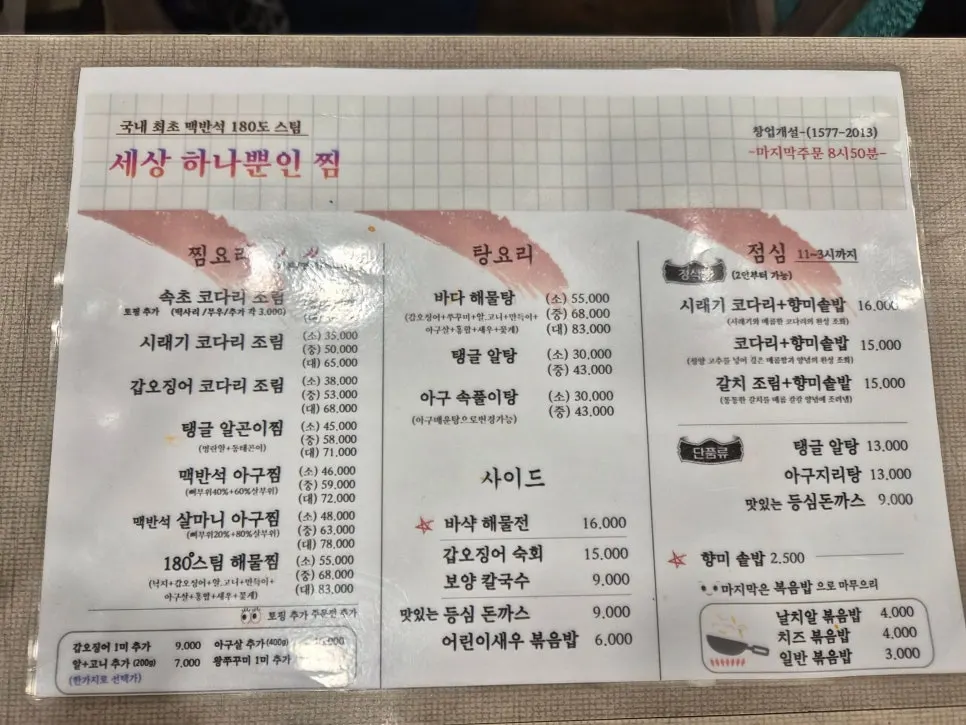 국내 최초 맥반석 180도 스팀
세상 하나뿐인 찜
창업개설-(1577-2013)
-마지막주문 8시50분-
찜요리
속초 코다리 조림
토핑 추가 (떡사리 /무우/추가 각 3.000)
시래기 코다리 조림
(소) 35,000
(중) 50,000
(대) 65,000
갑오징어 코다리 조림
(소) 38,000
(중) 53,000
(대) 68,000
탱글 알곤이찜
(명란알+동태곤이)
(소) 45,000
(중) 58,000
(대) 71,000
맥반석 아구찜
(뼈부위40%+60%살부위)
(소) 46,000
(중) 59,000
(대) 72,000
맥반석 살마니 아구찜
(뼈부위20%+80%살부위)
(소) 48,000
(중) 63,000
(대) 78,000
180°스팀 해물찜
(낙지+갑오징어+알.고니+만득이+
아구살+홍합+새우+꽃게)
(소) 55,000
(중) 68,000
(대) 83,000
토핑 추가 주문전 추가
갑오징어 1미 추가 9,000
아구살 추가(400g)
알+고니 추가 (200g) 7,000
왕쭈꾸미 1미 추가
(한가지로 선택가)
탕요리
바다 해물탕
(갑오징어+쭈꾸미+알.고니+만득이+
아구살+홍합+새우+꽃게)
(소) 55,000
(중) 68,000
(대) 83,000
탱글 알탕
(소) 30,000
(중) 43,000
아구 속풀이탕
(아구매운탕으로변경가능)
(소) 30,000
(중) 43,000
사이드
바샥 해물전 16,000
갑오징어 숙회 15,000
보양 칼국수 9,000
맛있는 등심 돈까스 9,000
어린이새우 볶음밥 6,000
점심 11~3시까지
정식류 (2인부터 가능)
시래기 코다리+향미솥밥 16.000
(시래기와 매콤한 코다리의 환상 조화)
코다리+향미솥밥 15,000
(청양 고추를 넣어 깊은 매콤함과 양념의 환상 조화)
갈치 조림+향미솥밥 15,000
(통통한 갈치를 매콤 칼칼 양념에 조려낸)
단품류
탱글 알탕 13,000
아구지리탕 13,000
맛있는 등심돈까스 9.000
향미 솥밥 2.500
마지막은 볶음밥 으로 마무으리
날치알 볶음밥 4.000
치즈 볶음밥 4,000
일반 볶음밥 3.000